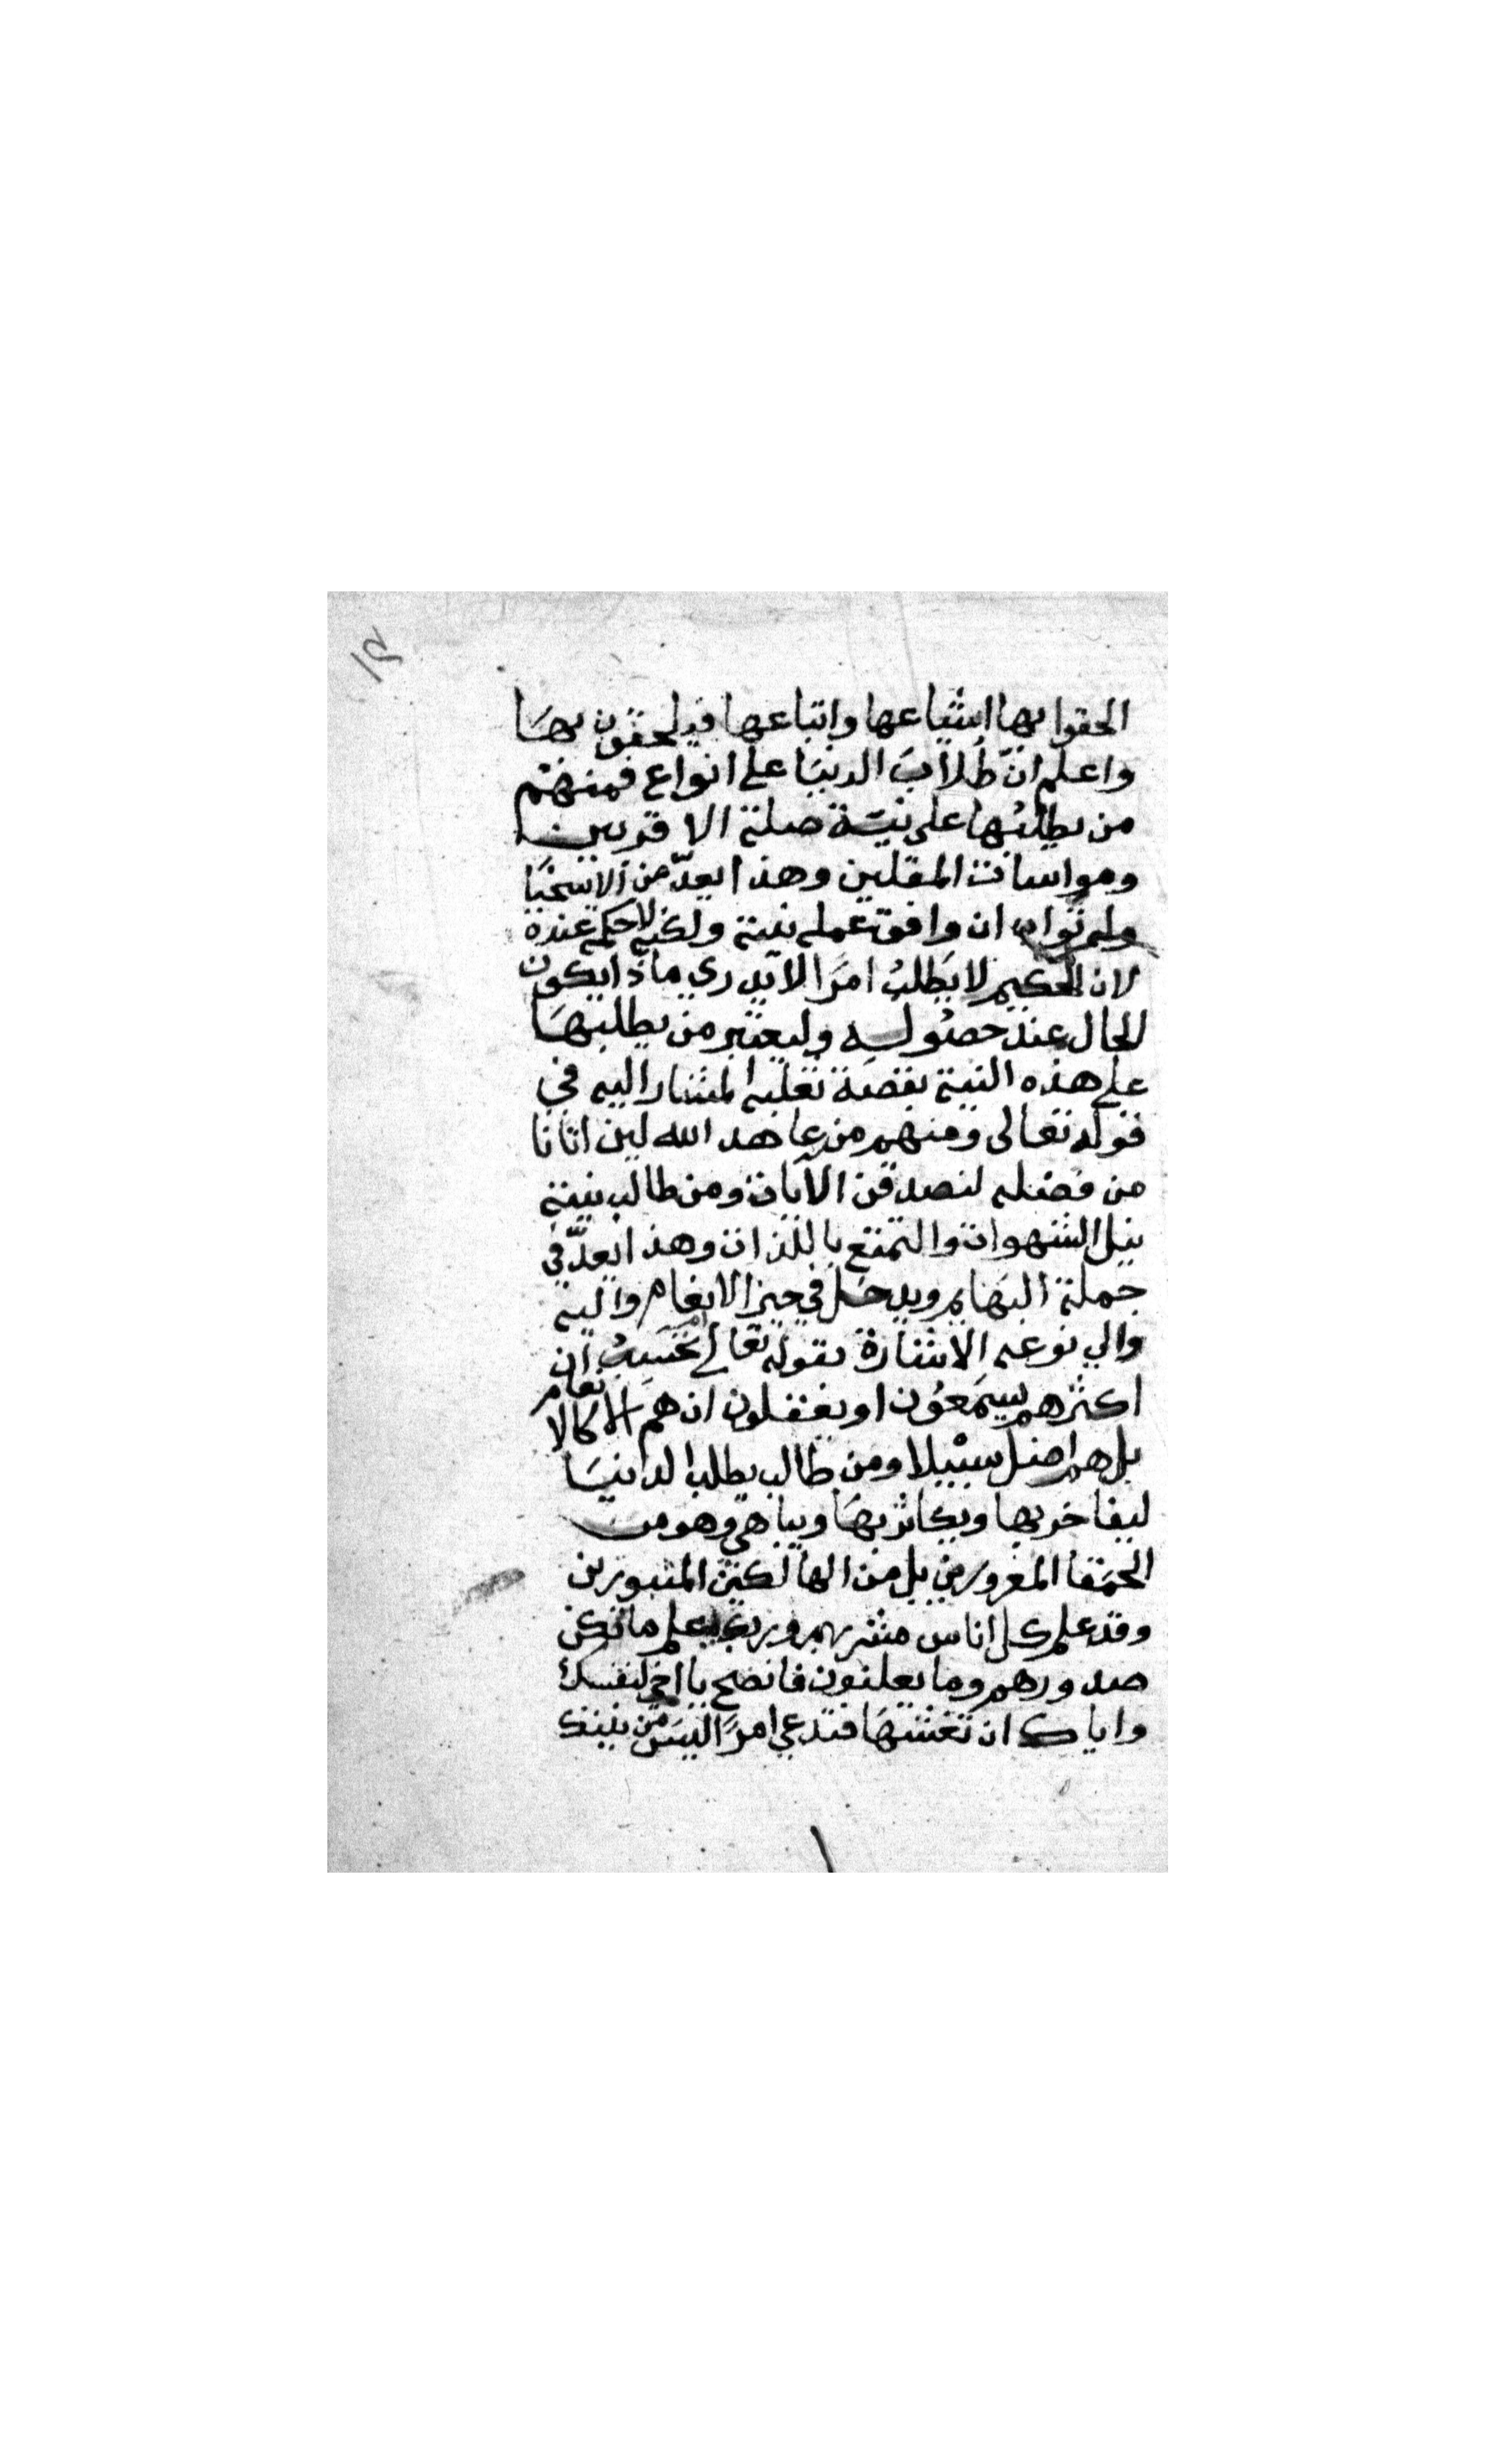 ١٢
الحقوا بها اشياعها واتباعها فيلحقون بها
واعلم انّ طُلاّبَ الدنيَا على انواع فمنهم
من يطلبُها على نيّة صلة الاقربين
ومواسات المقلين وهذا يعدّ من الاسخيا
وله ثواب ان وافق عمله نيته ولكنه لا حكم عنده
لان الحكيم لا يَطلبُ امرًا لا يدري ماذا يكون
الحال عند حصُوله وليعتبر من يطلبهَا
على هذه النية بقصة ثعلبه المشار اليه في
قوله تعالى ومنهم من عاهد الله لين اتانا
من فضله لنصدقن الايات ومن طالب بنية
نيل الشهوات والتمتع باللذات وهذا يعدّ في
جملة البهايم ويدخل في حيز الانعام واليه
والي نوعه الاشارة بقوله تعالى ام تحسِبُ ان
اكثرهم يسمَعُون او يعقلون ان هم الا كالانعام
بل هم اضل سبيلا ومن طالب يطلب الدانيَا
ليفاخر بها ويكاثر بهَا ويباهي وهو من
الحمَقا المغرورين بل من الهالكين المثبورين
وقد علم كل اناس مشربهم وربك يعلم ما تكن
صدورهم وما يعلنون فانصح يا اخي لنفسك
واياك ان تغشهَا فتدعي امرًا ليسَ من نيتك